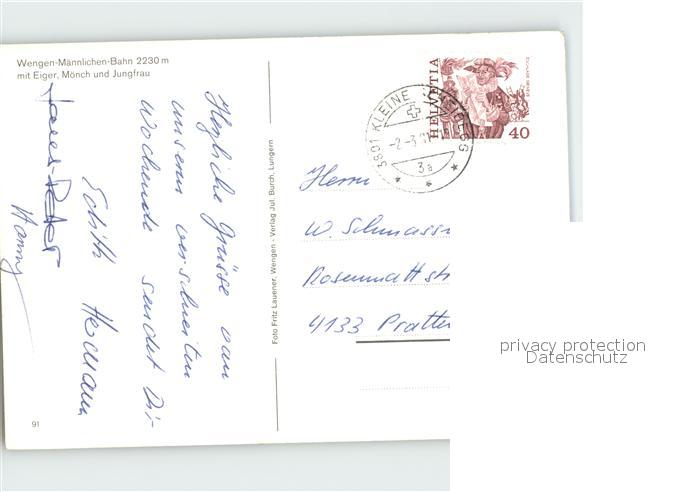 Wengen-Männlichen-Bahn 2230 m
mit Eiger, Mönch und Jungfrau
Herzliche Grüsse von
unserem verschneiten
Wochende sendet Dir
Edith Hermann
Hans-Peter
Hanny
91
Foto Fritz Lauener, Wengen - Verlag Jul. Burch, Lungern
HELVETIA
40
3801 KLEINE SCHEIDEGG
-2.-3.
3a
Herrn
W. Schmass
Rosenmattstr
4133 Pratte
privacy protection
Datenschutz